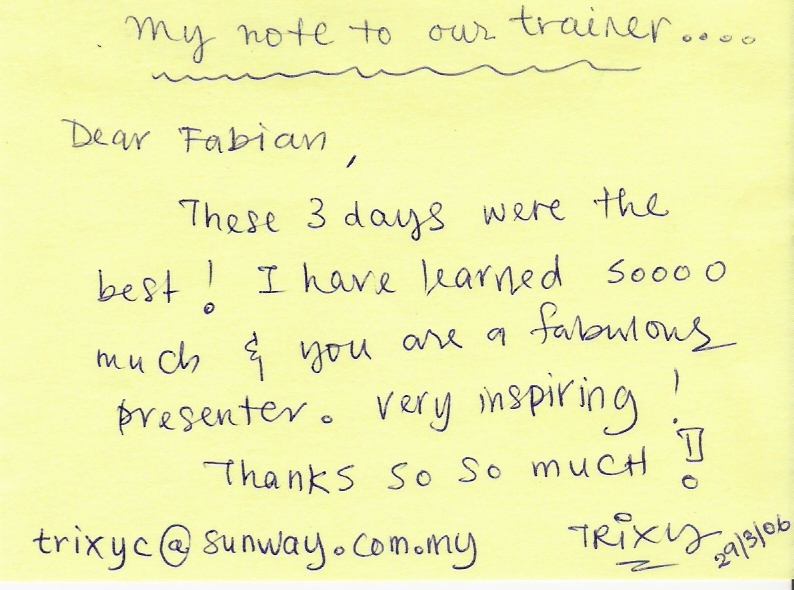 My note to our trainer....
Dear Fabian,
These 3 days were the
best! I have learned soooo
much & you are a fabulous
presenter. Very inspiring!
Thanks so so much!
trixyc@sunway.com.my TRiXY 29/3/06